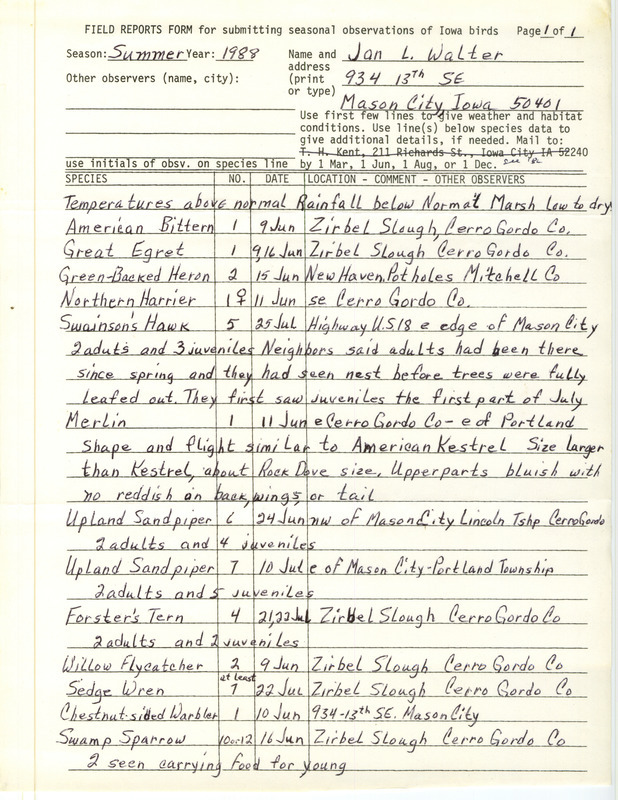 FIELD REPORTS FORM for submitting seasonal observations of Iowa birds Page 1 of 1
Season: Summer Year: 1988 Name and Jan L. Walter
address
Other observers (name, city): (print 934 13th SE
or type)
Mason City Iowa 50401
Use first few lines to give weather and habitat
conditions. Use line(s) below species data to
give additional details, if needed. Mail to:
T. H. Kent, 211 Richards St., Iowa City IA 52240
use initials of obsv. on species line by 1 Mar, 1 Jun, 1 Aug, or 1 Dec.
SPECIES NO. DATE LOCATION - COMMENT - OTHER OBSERVERS
Temperatures above normal Rainfall below Normal Marsh low to dry
American Bittern 1 9 Jun Zirbel Slough, Cerro Gordo Co.
Great Egret 1 9,16 Jun Zirbel Slough Cerro Gordo Co.
Green-Backed Heron 2 15 Jun New Haven Potholes Mitchell Co
Northern Harrier 1♀ 11 Jun se Cerro Gordo Co.
Swainson's Hawk 5 25 Jul Highway U.S 18 e edge of Mason City
2 aduts and 3 juveniles Neighbors said adults had been there
since spring and they had seen nest before trees were fully
leafed out. They first saw juveniles the first part of July
Merlin 1 11 Jun e Cerro Gordo Co - e of Portland
Shape and flight similar to American Kestrel Size larger
than Kestrel, about Rock Dove size, Upperparts bluish with
no reddish on back, wings, or tail
Upland Sandpiper 6 24 Jun nw of Mason City Lincoln Tshp Cerro Gordo
2 adults and 4 juveniles
Upland Sandpiper 7 10 Jul e of Mason City-Portland Township
2 adults and 5 juveniles
Forster's Tern 4 21,22 Jul Zirbel Slough Cerro Gordo Co
2 adults and 2 juveniles
Willow Flycatcher 2 9 Jun Zirbel Slough Cerro Gordo Co
at least
Sedge Wren 7 22 Jul Zirbel Slough Cerro Gordo Co
Chestnut-sided Warbler 1 10 Jun 934-13th SE. Mason City
Swamp Sparrow 10 or 12 16 Jun Zirbel Slough Cerro Gordo Co
2 seen carrying food for young